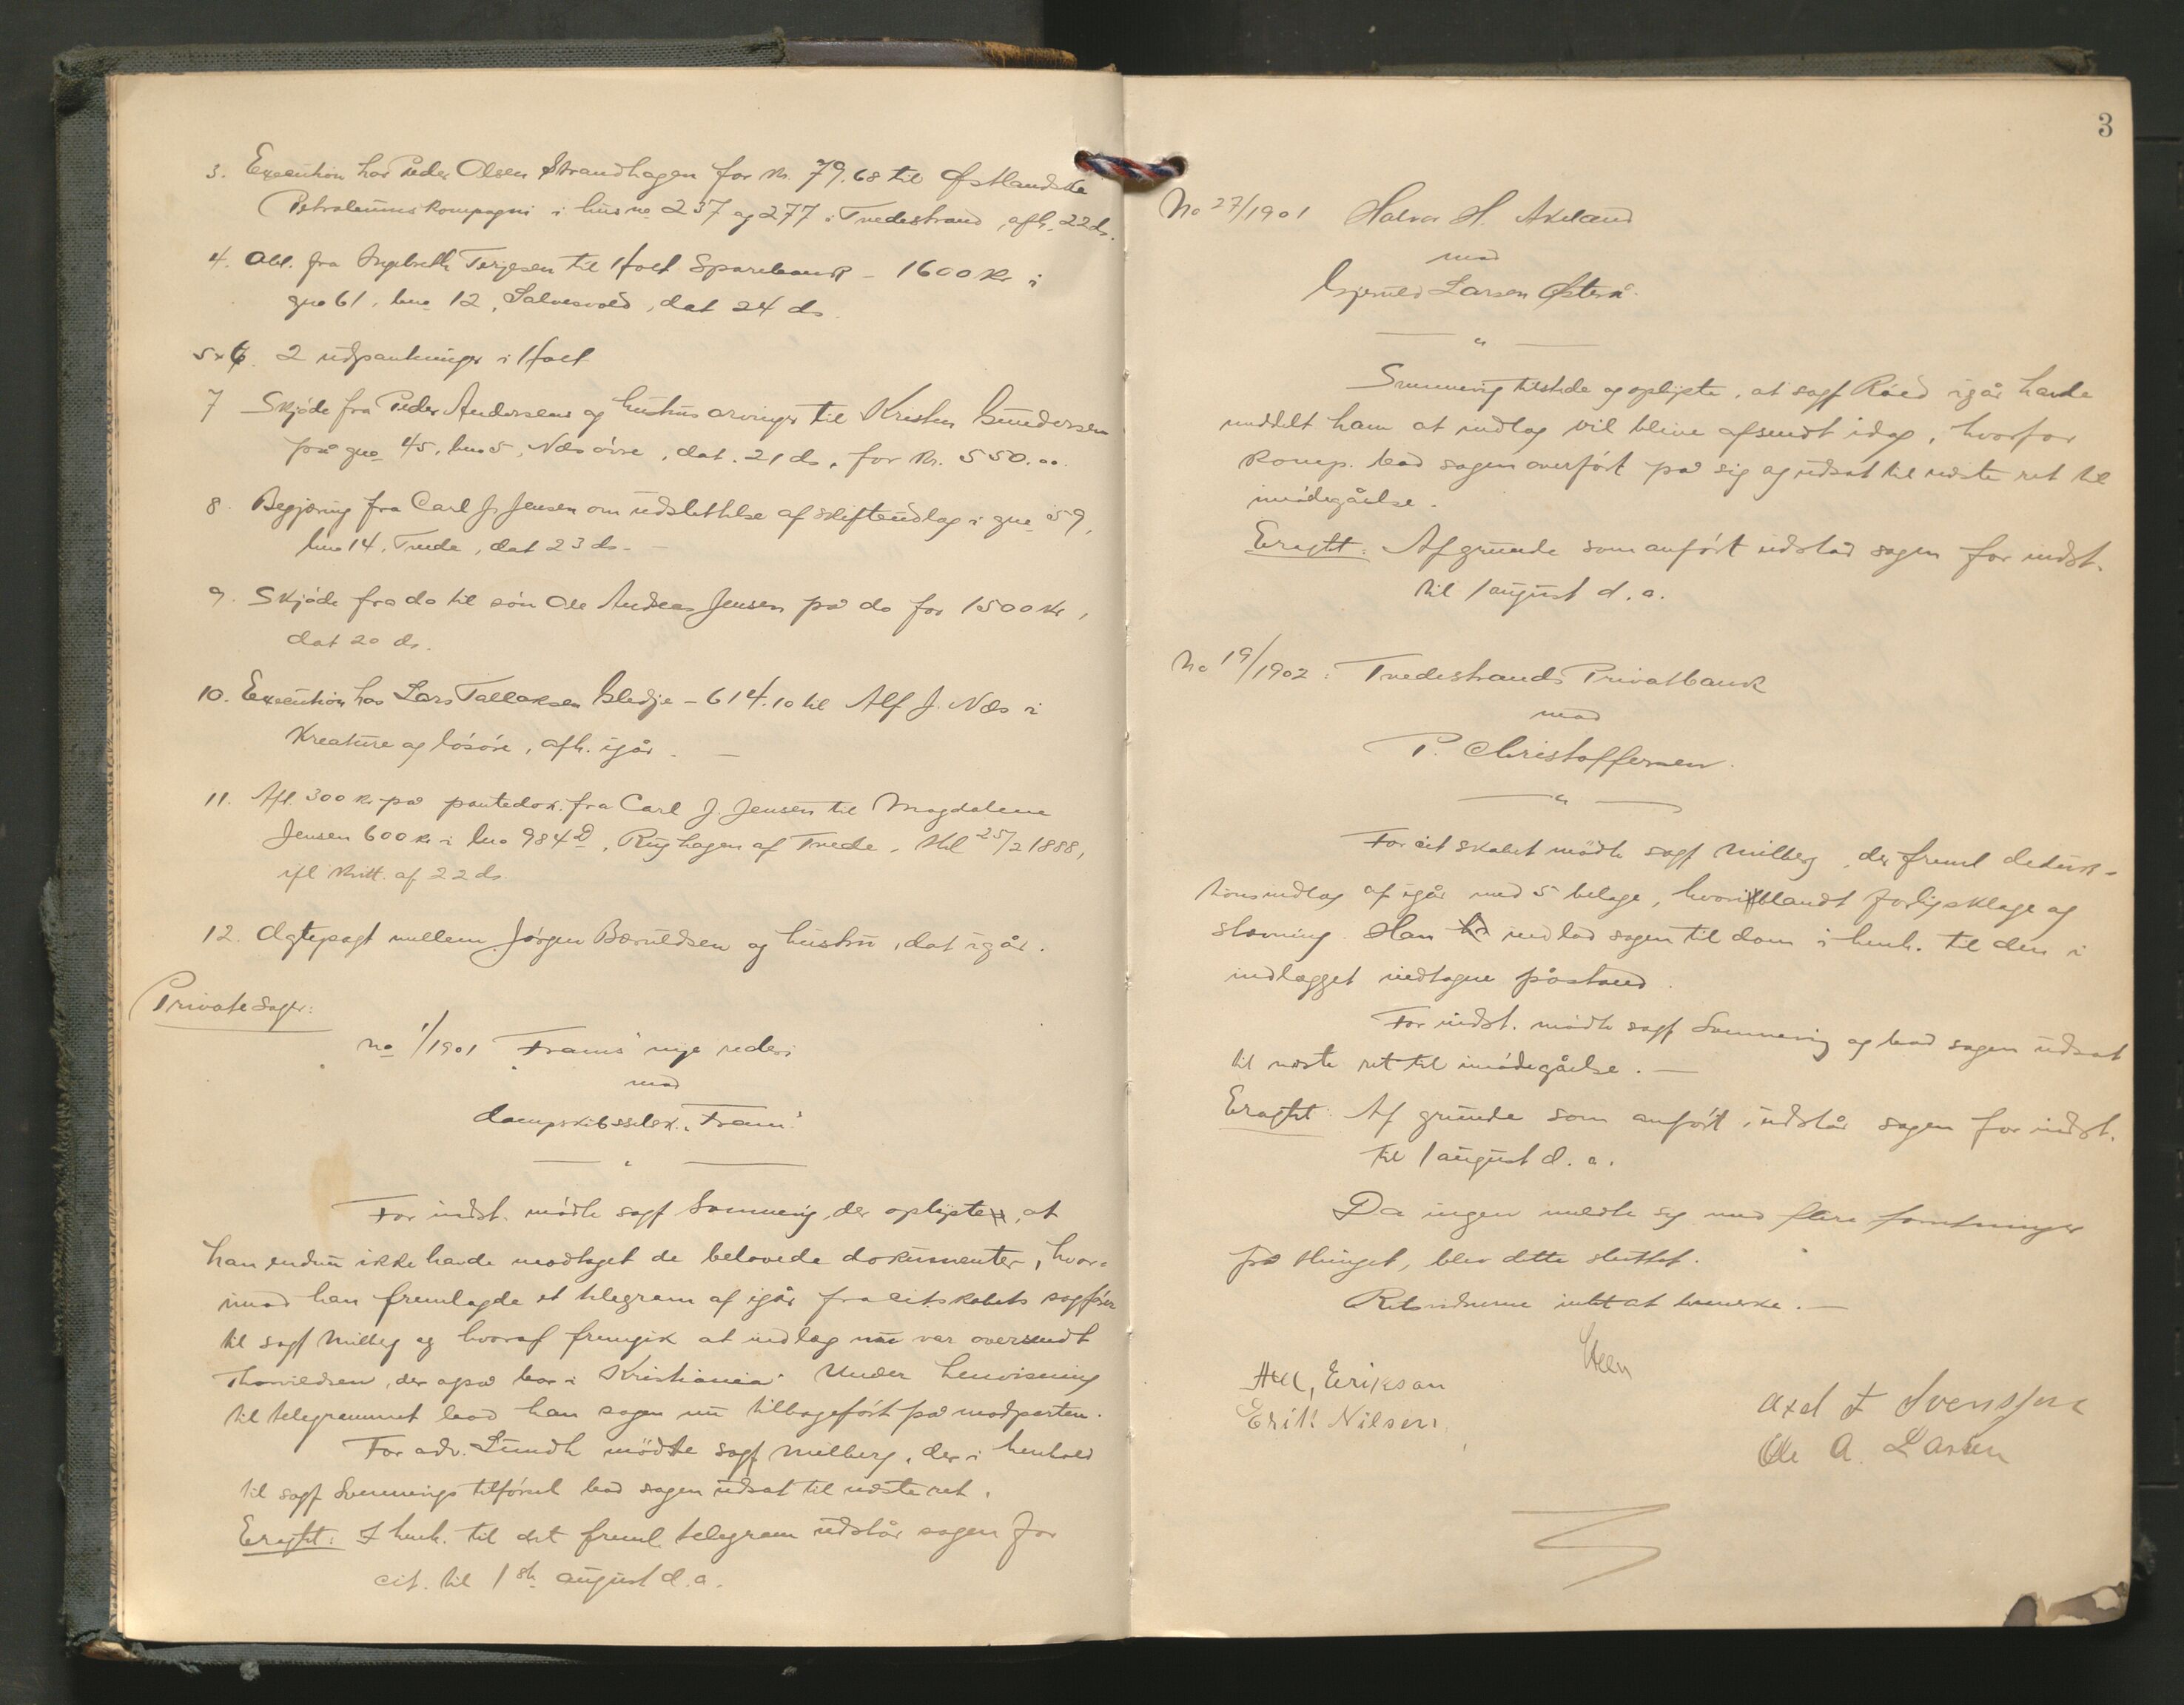 3. Execution hos Peder Olsen Strandhagen for kr. 79.68 til Østlandske
Petroleumskompagni i husno 237 og 277 i Tvedestrand, afh. 22 ds.
4. Obl. fra Ingebreth Terjesen til Holt Sparebank – 1600 kr i
gno 61, bno 12, Salvesvold, dat 24 ds.
5 x 6. 2 udpantninger i Holt
7 Skjöde fra Peder Andersens og hustrus arvinger til Kristen Gundersen
på gno 45, bno 5, Næs övre, dat. 21 ds, for kr. 550.00.
8. Begjæring fra Carl J. Jensen om udslettelse af skifteudlæg i gno 59,
bno 14, Tvede, dat 23 ds. –
9. Skjöde fra do til sön Ole Andreas Jensen på do for 1500 kr,
dat 20 ds.
10. Execution hos Lars Tallaksen Gledje – 614.10 til Alf J. Næs i
Kreature og lösöre, afh. igår. –
11. Afl. 300 kr på pantedok. fra Carl J. Jensen til Magdalene
Jensen 600 kr i lno 984 D, Rughagen af Tvede, thl 25/2 1888,
ifl kvitt. af 22 ds.
12. Ægtepagt mellem Jörgen Bårueldsen og hustru, dat igår.
Private sager:
No 1/1901 "Frams" nye rederi
mod
dampskibsselsk. "Fram".
For indst. mödte sagf Sömmering, der oplyste, at
han endnu ikke havde modtaget de belovede dokumenter, hvor-
imod han fremlagde et telegram af igår fra citskabets sagförer
til sagf Milberg og hvoraf fremgik at indlæg nu var oversendt
Thorvildsen, der også bor i Kristiania. Under henvisning
til telegrammet bad han sagen nu tilbageført på modparten.
For adv. Lundh mödte sagf Milberg, der i henhold
til sagf Sömmerings tilförsel bad sagen udsat til næste ret.
Eragtet: I henh. til det freml. telegram udstår sagen for
cit. til 1ste august d.a.
3
No 27/1901 Halvor H. Akeland
mod
Gjeruld Larsen Østerå.
Sömmering tilstede og oplyste, at sagf Röed igår havde
meddelt ham at indlæg vil blive afsendt idag, hvorfor
komp. bad sagen overfört på sig og udsat til næste ret til
imödegåelse.
Eragtet: Af grunde som anfört udstår sagen for indst.
til 1 august d.a.
No 19/1902: Tvedestrands Privatbank
mod
P. Christoffersen.
For citskabet mödte sagf Milberg, der freml deduk-
tionsindlæg af igår med 5 belage, hvoriblandt forligsklage og
stævning. Han indlod sagen til dom i henh. til den i
indlægget nedtagne påstand.
For indst. mödte sagf Sömmering og bad sagen udsat
til næste ret til imödegåelse. –
Eragtet: Af grunde som anfört, udstår sagen for indst.
til 1 august d.a.
Da ingen meldte sig med flere forretninger
på thinget, blev dette sluttet.
Retsvidnerne intet at bemerke. –
Steen
Axel, Erikson
Erik Nilsen
Axel F Svensson
Ole A. Larsen